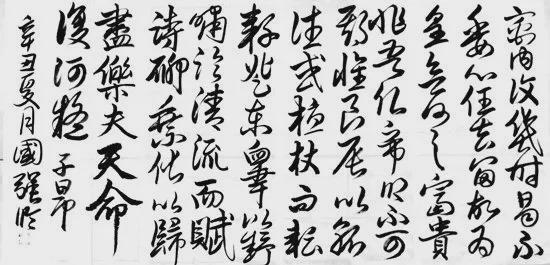 宇内復幾時曷不
委心任去留胡為
皇欲何之富貴
非吾願帝鄉不可
期懷良辰以孤
往或植杖而耘
耔登東皋以舒
嘯臨清流而賦
詩聊乘化以歸
盡樂夫天命
復何疑 子昂
辛丑夏月國強臨